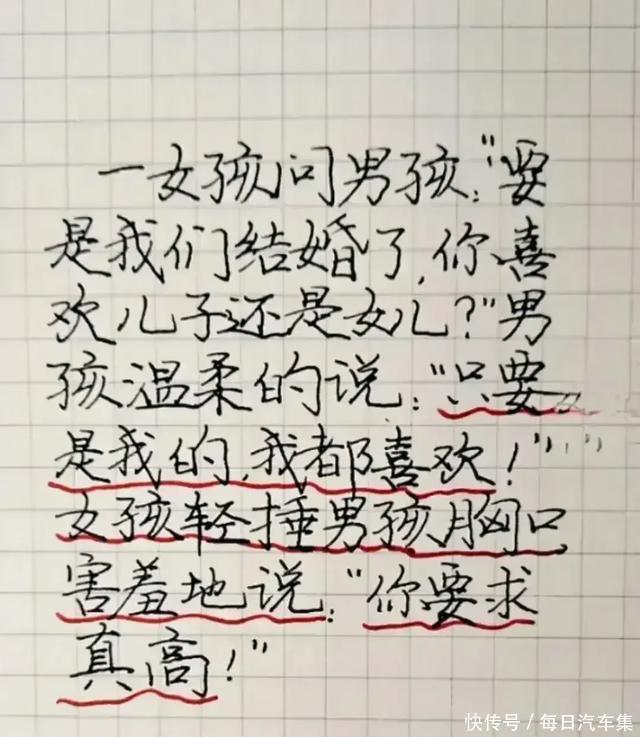 一女孩问男孩:"要
是我们结婚了,你喜
欢儿子还是女儿?"男
孩温柔的说:"只要
是我的,我都喜欢!"
女孩轻捶男孩胸口
害羞地说:"你要求
真高!"
快传号/每日汽车集